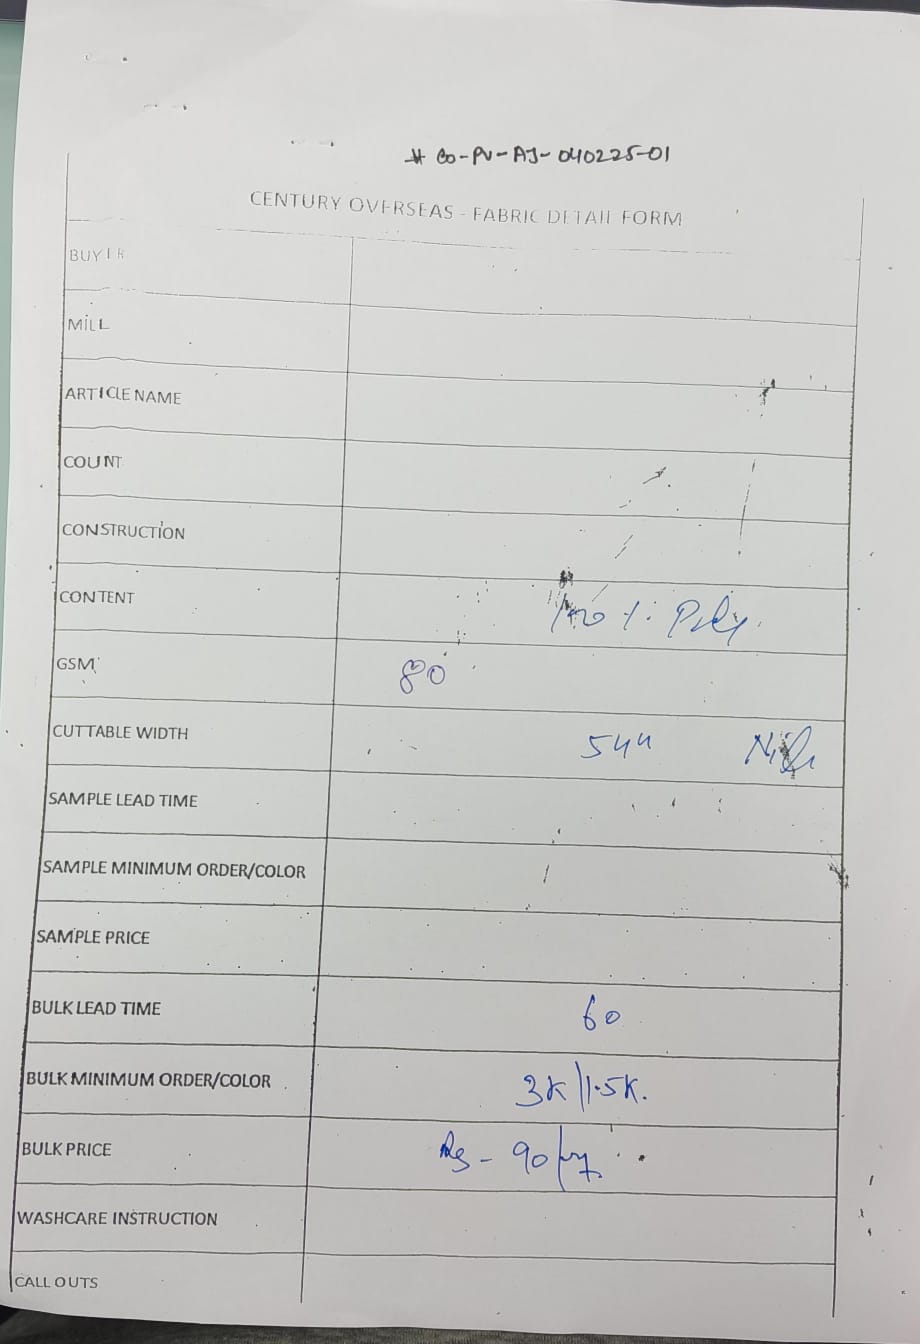 # CO-PV-AJ-040225-01
CENTURY OVERSEAS - FABRIC DETAIL FORM
BUYER
MILL
ARTICLE NAME
COUNT
CONSTRUCTION
CONTENT 100 %. Poly.
GSM 80
CUTTABLE WIDTH 54"
SAMPLE LEAD TIME
SAMPLE MINIMUM ORDER/COLOR
SAMPLE PRICE
BULK LEAD TIME 60
BULK MINIMUM ORDER/COLOR 3K/1.5K.
BULK PRICE Rs - 90/
WASHCARE INSTRUCTION
CALL OUTS